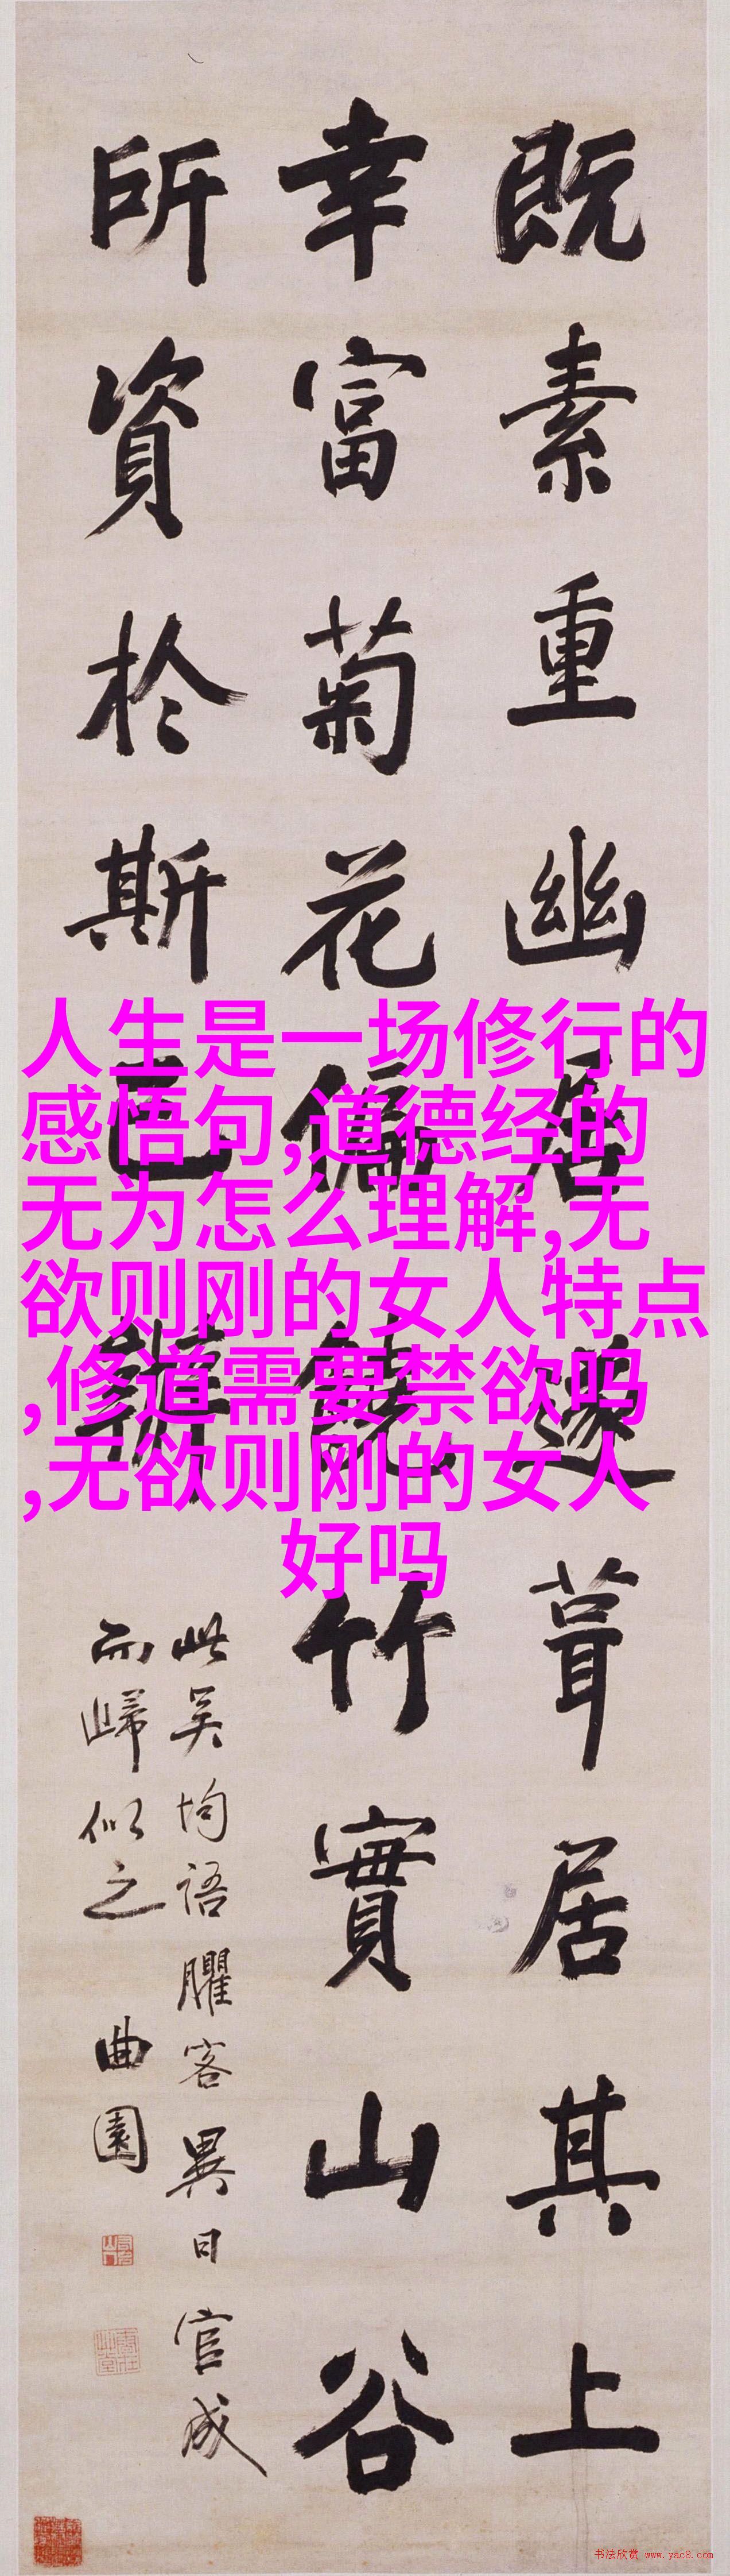 既素重幽居遂葺居其上
幸富菊花偏饒竹實山谷
所資於斯已辦
此吴均語臞客異日官成
而歸似之
曲園
人生是一场修行的
感悟句,道德经的
无为怎么理解,无
欲则刚的女人特点
,修道需要禁欲吗
,无欲则刚的女人
好吗
书法欣赏 www.yac8.com